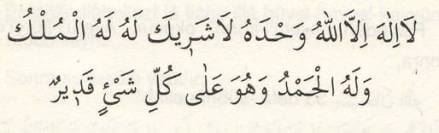 لَا اِلٰهَ اِلَّا اللهُ وَحْدَهُ لَا شَرِيكَ لَهُ لَهُ الْمُلْكُ
وَلَهُ الْحَمْدُ وَهُوَ عَلٰى كُلِّ شَىْءٍ قَدِيرٌ